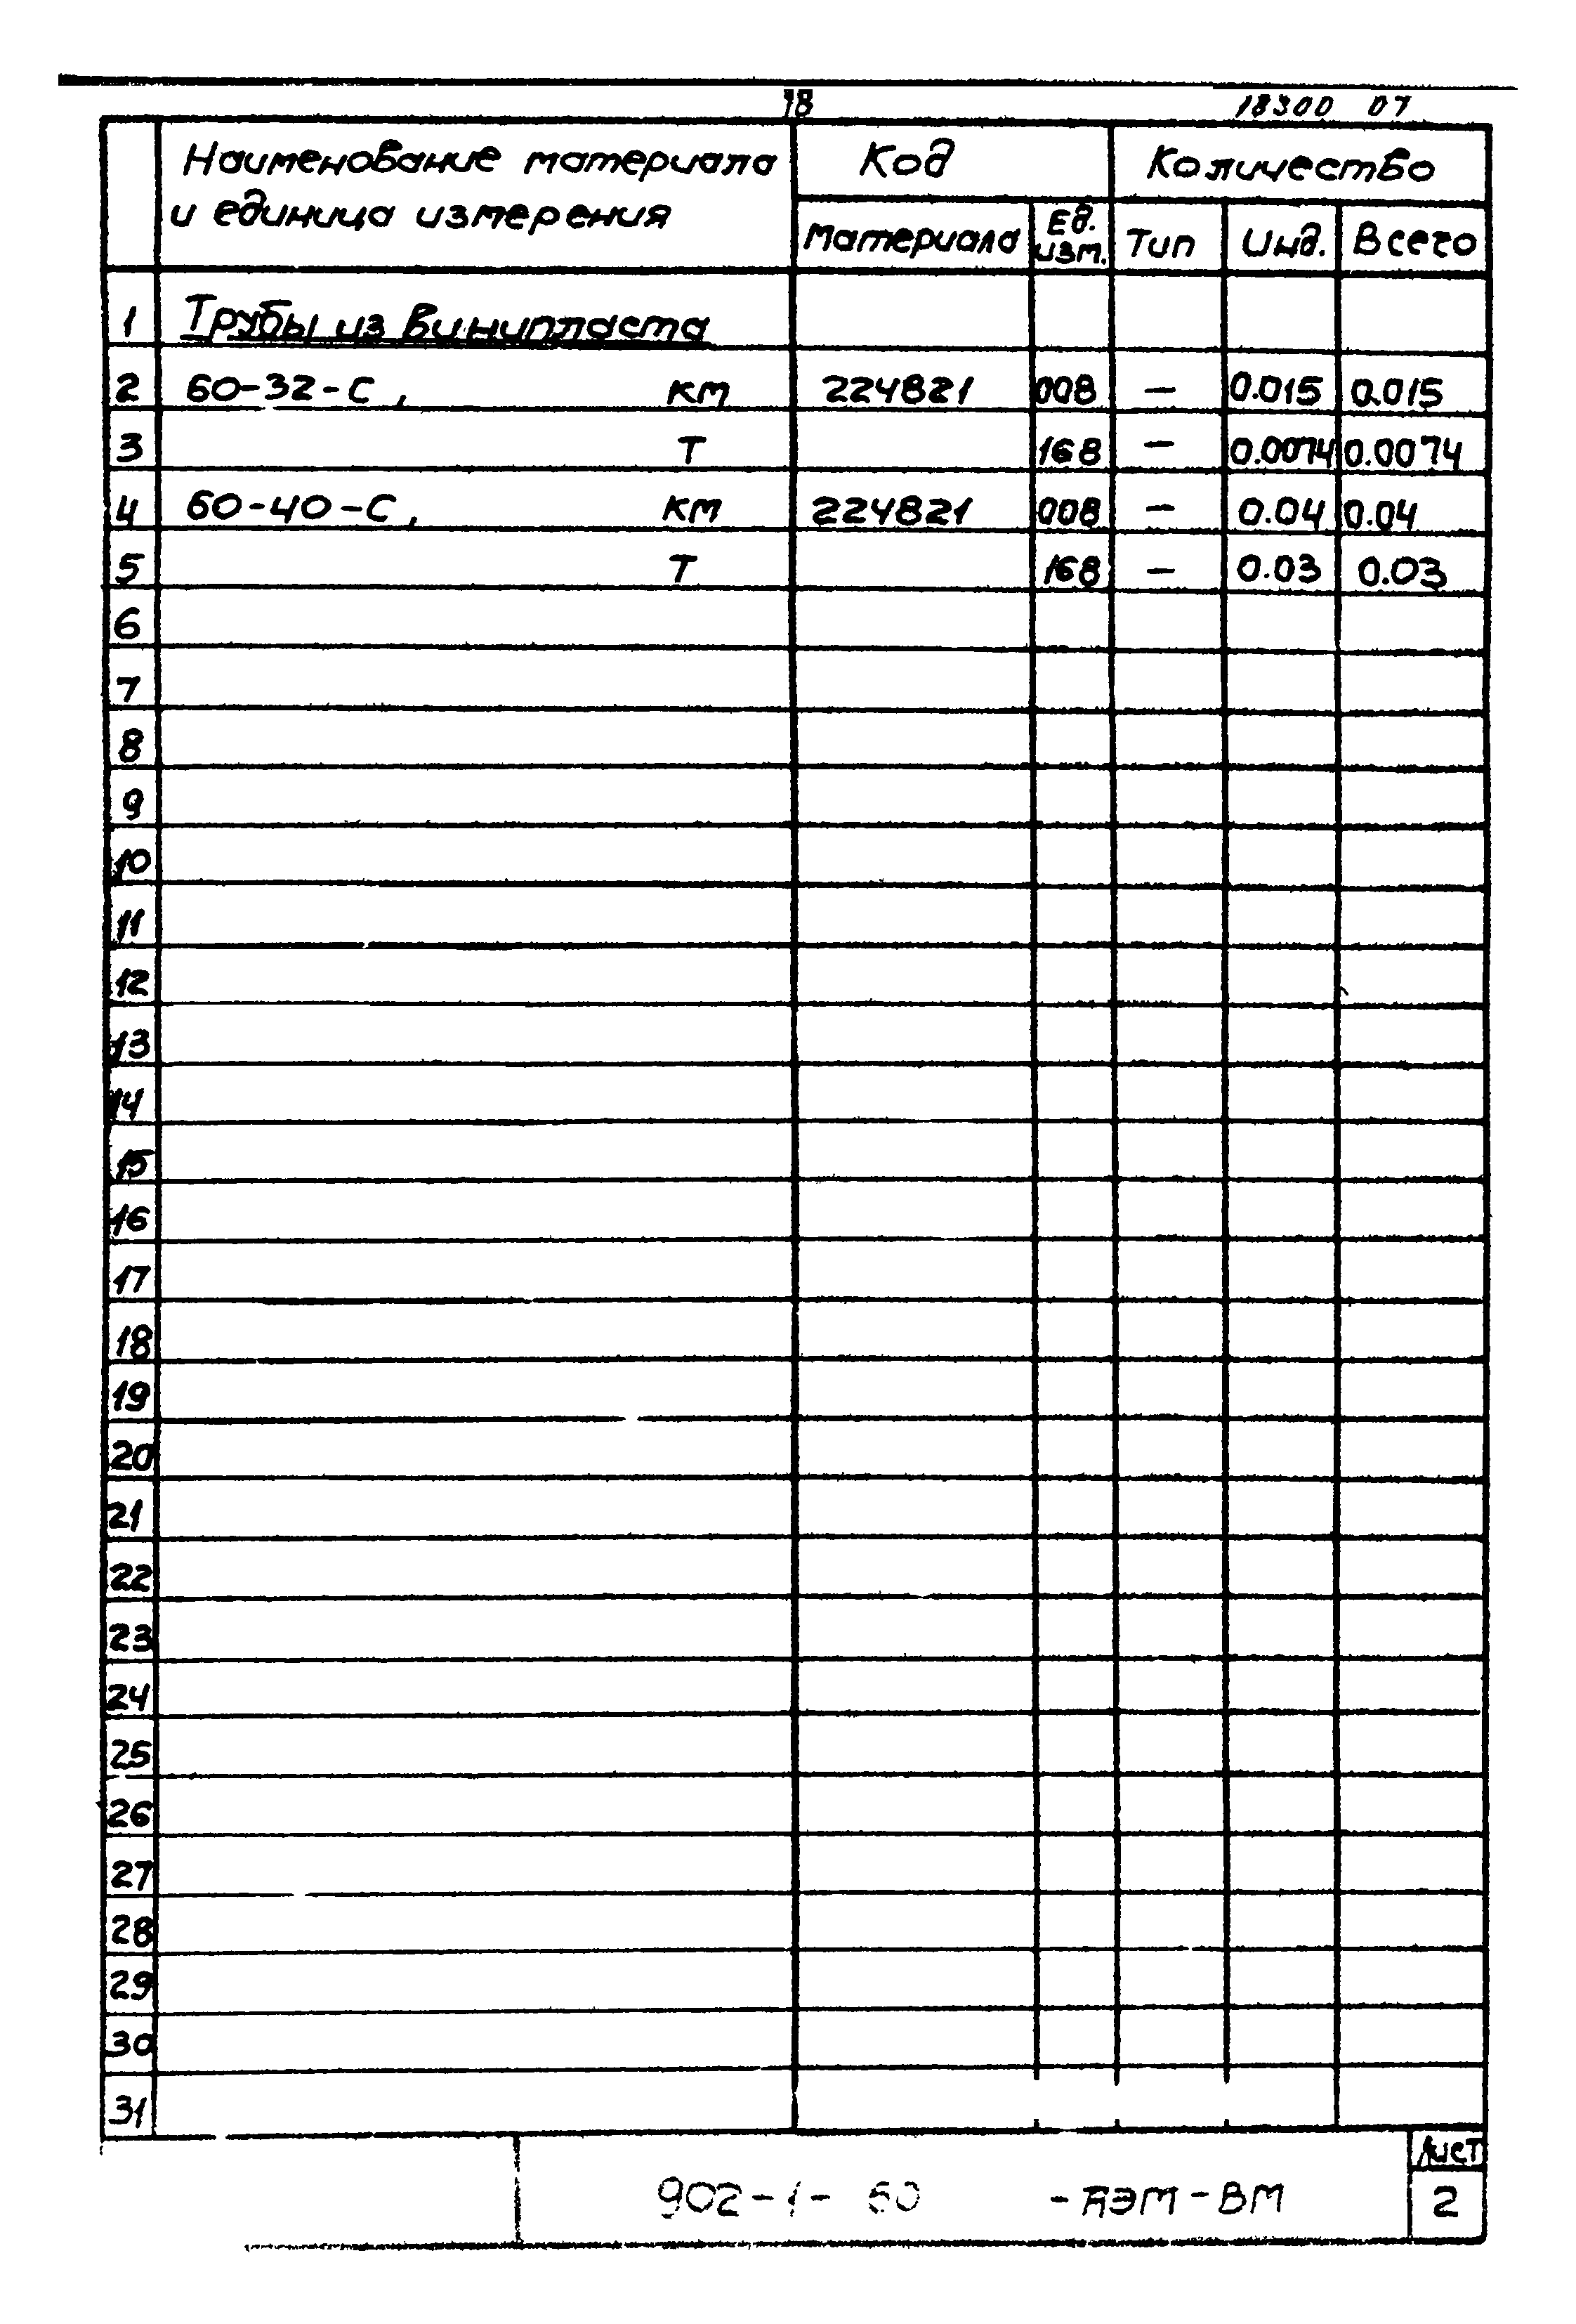 18
18300 07
Наименование материала и единица измерения
Код
Количество
Материала
Ед. изм.
Тип
Инд.
Всего
1 Трубы из винипласта
2 60-32-С, км 224821 008 – 0.015 0.015
3 т 168 – 0.0074 0.0074
4 60-40-С, км 224821 008 – 0.04 0.04
5 т 168 – 0.03 0.03
6
7
8
9
10
11
12
13
14
15
16
17
18
19
20
21
22
23
24
25
26
27
28
29
30
31
902-1- 60 -АЭМ-ВМ
Лист
2